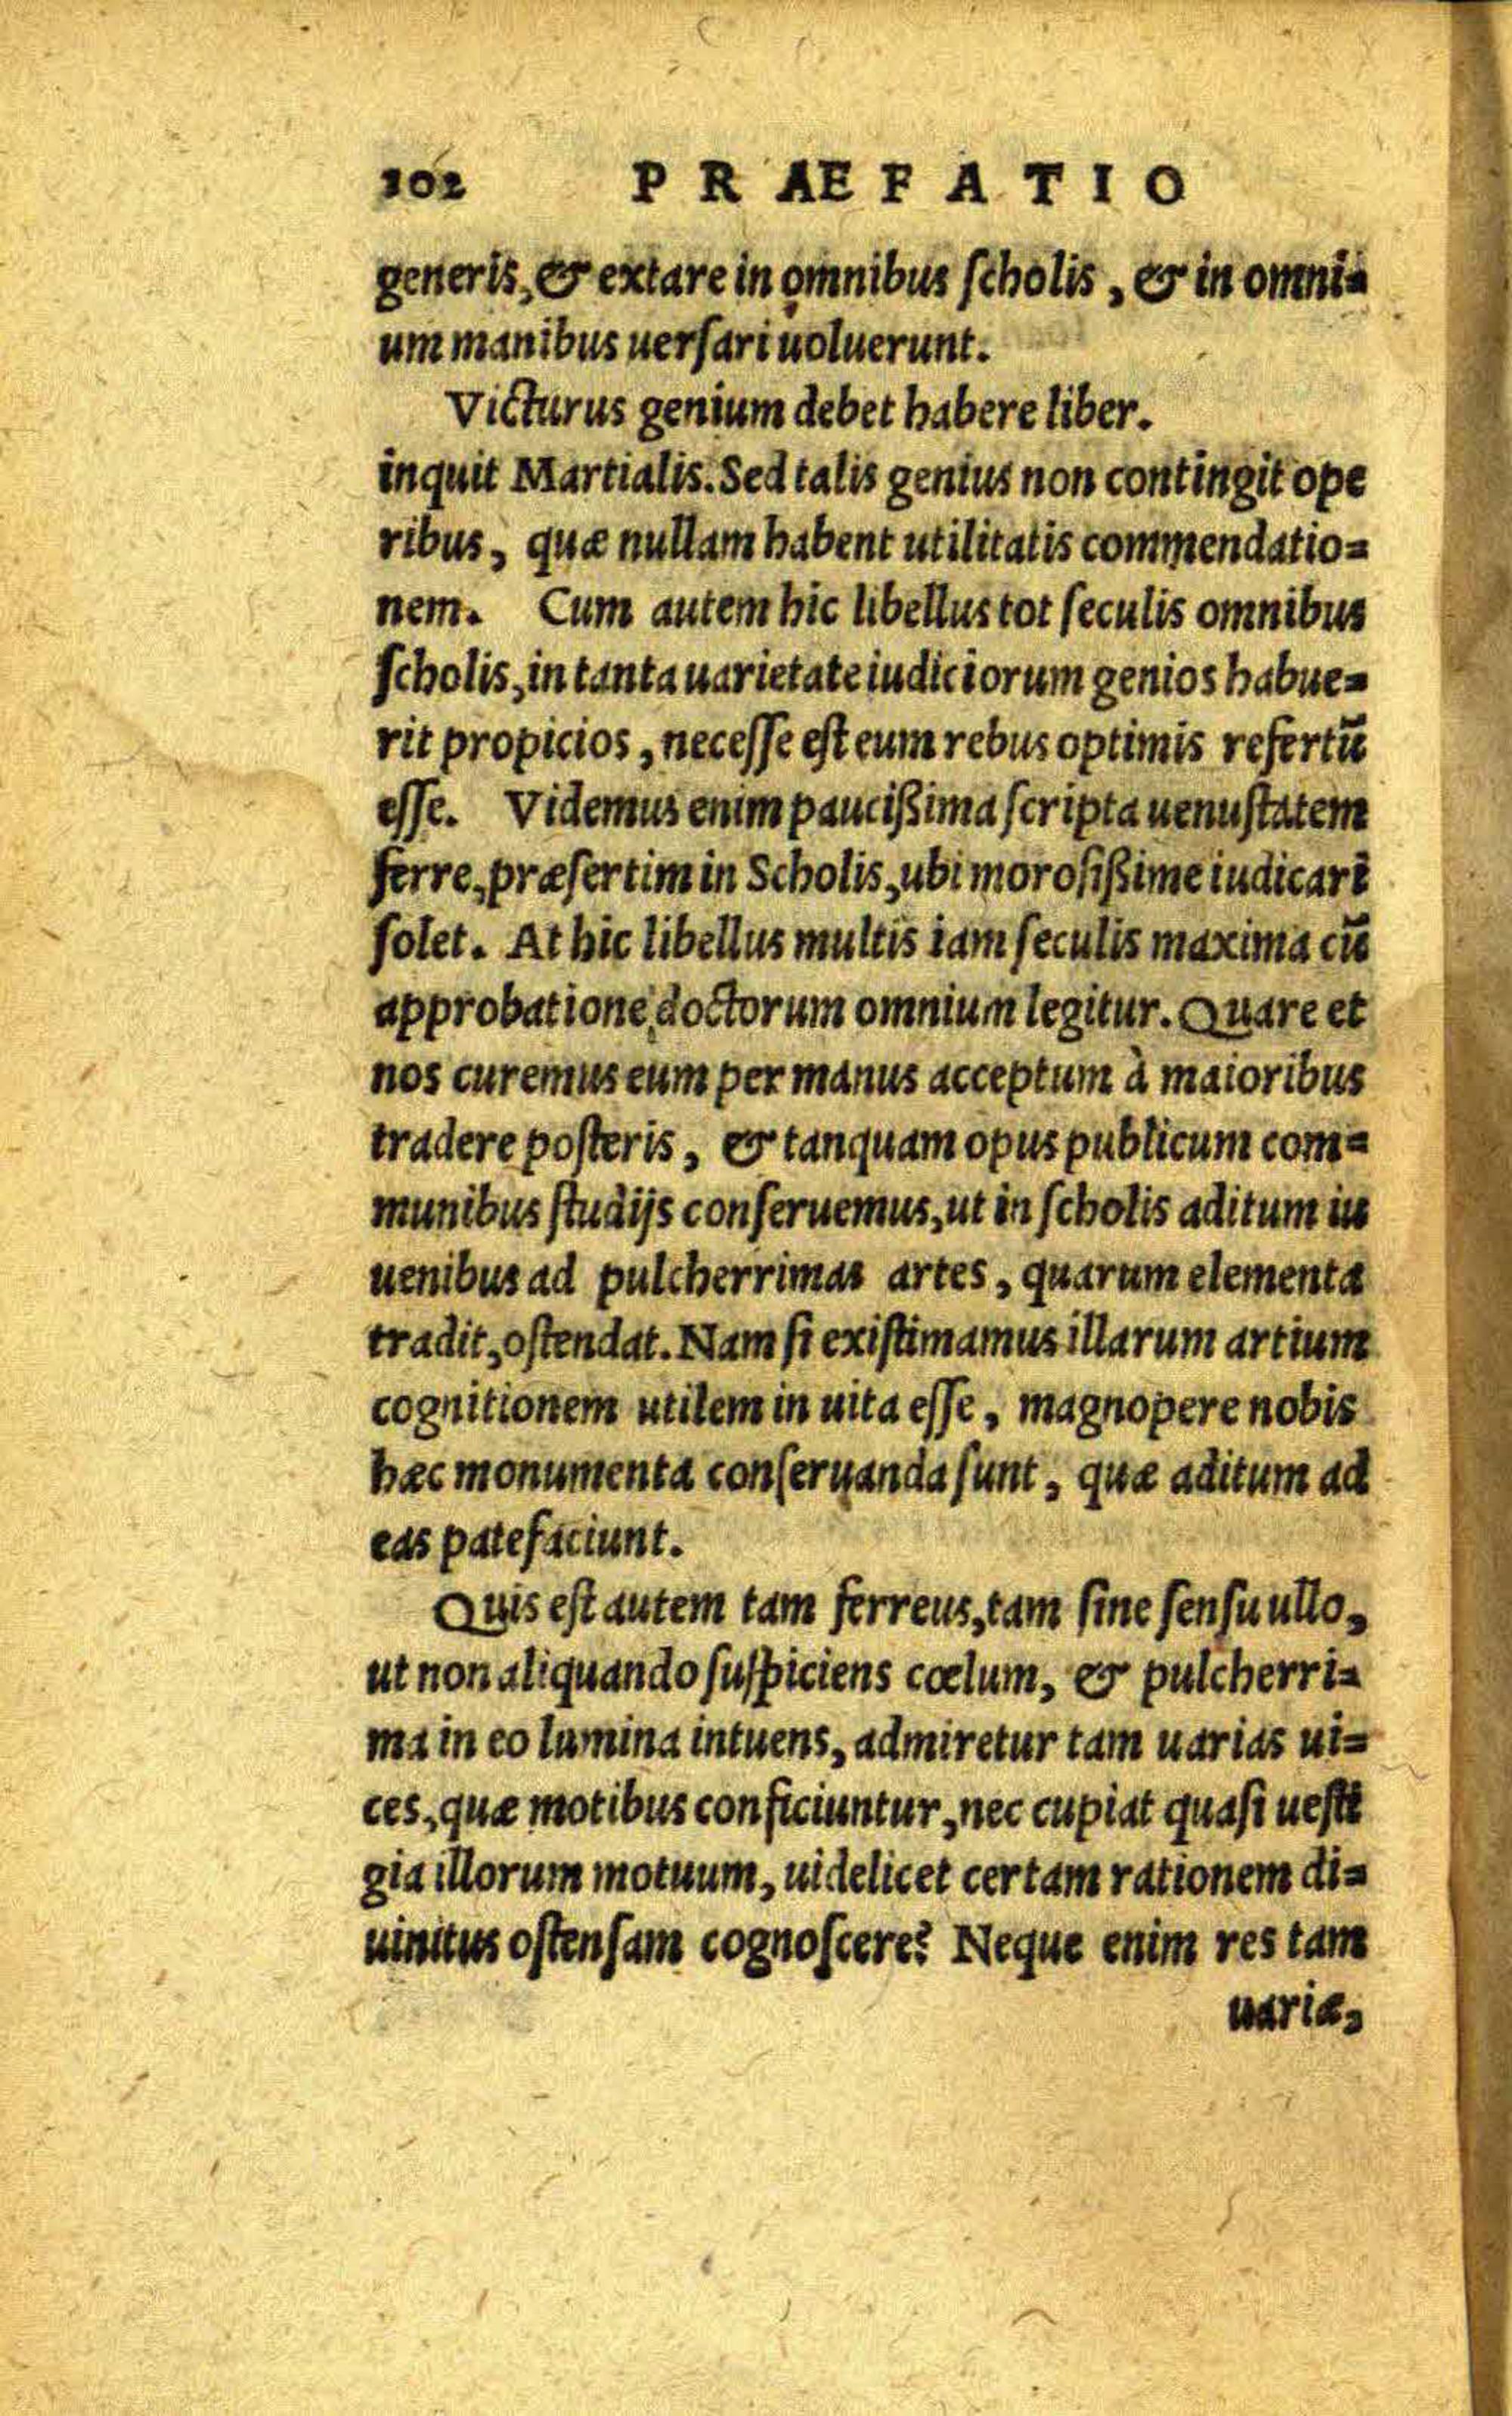 102 PRAEFATIO
generis, & extare in omnibus ſcholis, & in omni=
um manibus uerſari uoluerunt.
Victurus genium debet habere liber.
inquit Martialis. Sed talis genius non contingit ope
ribus, quæ nullam habent utilitatis commendatio=
nem. Cum autem hic libellus tot ſeculis omnibus
ſcholis, in tanta uarietate iudiciorum genios habue=
rit propicios, neceſſe eſt eum rebus optimis refertū
eſſe. Videmus enim pauciſsima ſcripta uenuſtatem
ferre, præſertim in Scholis, ubi moroſiſsime iudicari
ſolet. At hic libellus multis iam ſeculis maxima cū
approbatione doctorum omnium legitur. Quare et
nos curemus eum per manus acceptum à maioribus
tradere poſteris, & tanquam opus publicum com=
munibus ſtudijs conſeruemus, ut in ſcholis aditum iu
uenibus ad pulcherrimas artes, quarum elementa
tradit, oſtendat. Nam ſi exiſtimamus illarum artium
cognitionem utilem in uita eſſe, magnopere nobis
hæc monumenta conſeruanda ſunt, quæ aditum ad
eas patefaciunt.
Quis eſt autem tam ferreus, tam ſine ſenſu ullo,
ut non aliquando ſuſpiciens cœlum, & pulcherri=
ma in eo lumina intuens, admiretur tam uarias ui=
ces, quæ motibus conficiuntur, nec cupiat quaſi ueſti
gia illorum motuum, uidelicet certam rationem di=
uinitus oſtenſam cognoſcere? Neque enim res tam
uariæ,